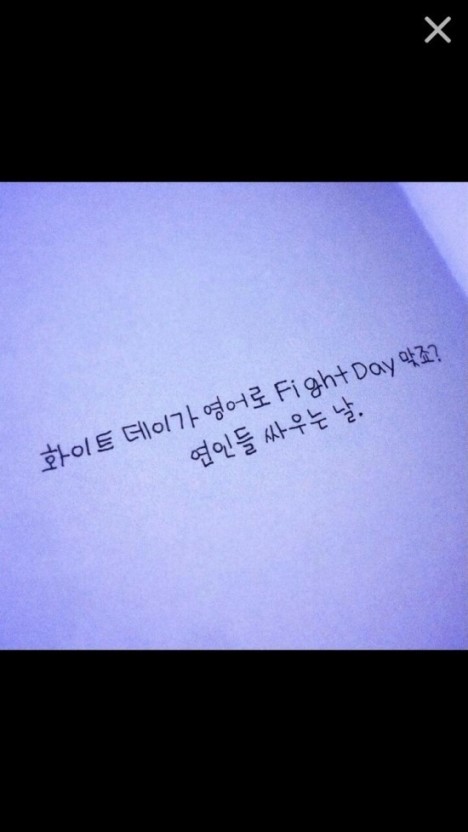 화이트 데이가 영어로 Fight Day 맞죠?
연인들 싸우는 날.